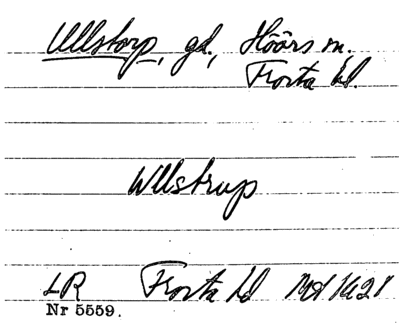 Ullstorp, gd., Höörs sn.
Frosta hd.
Wllstrup
LR Frosta hd
Nr 5559.